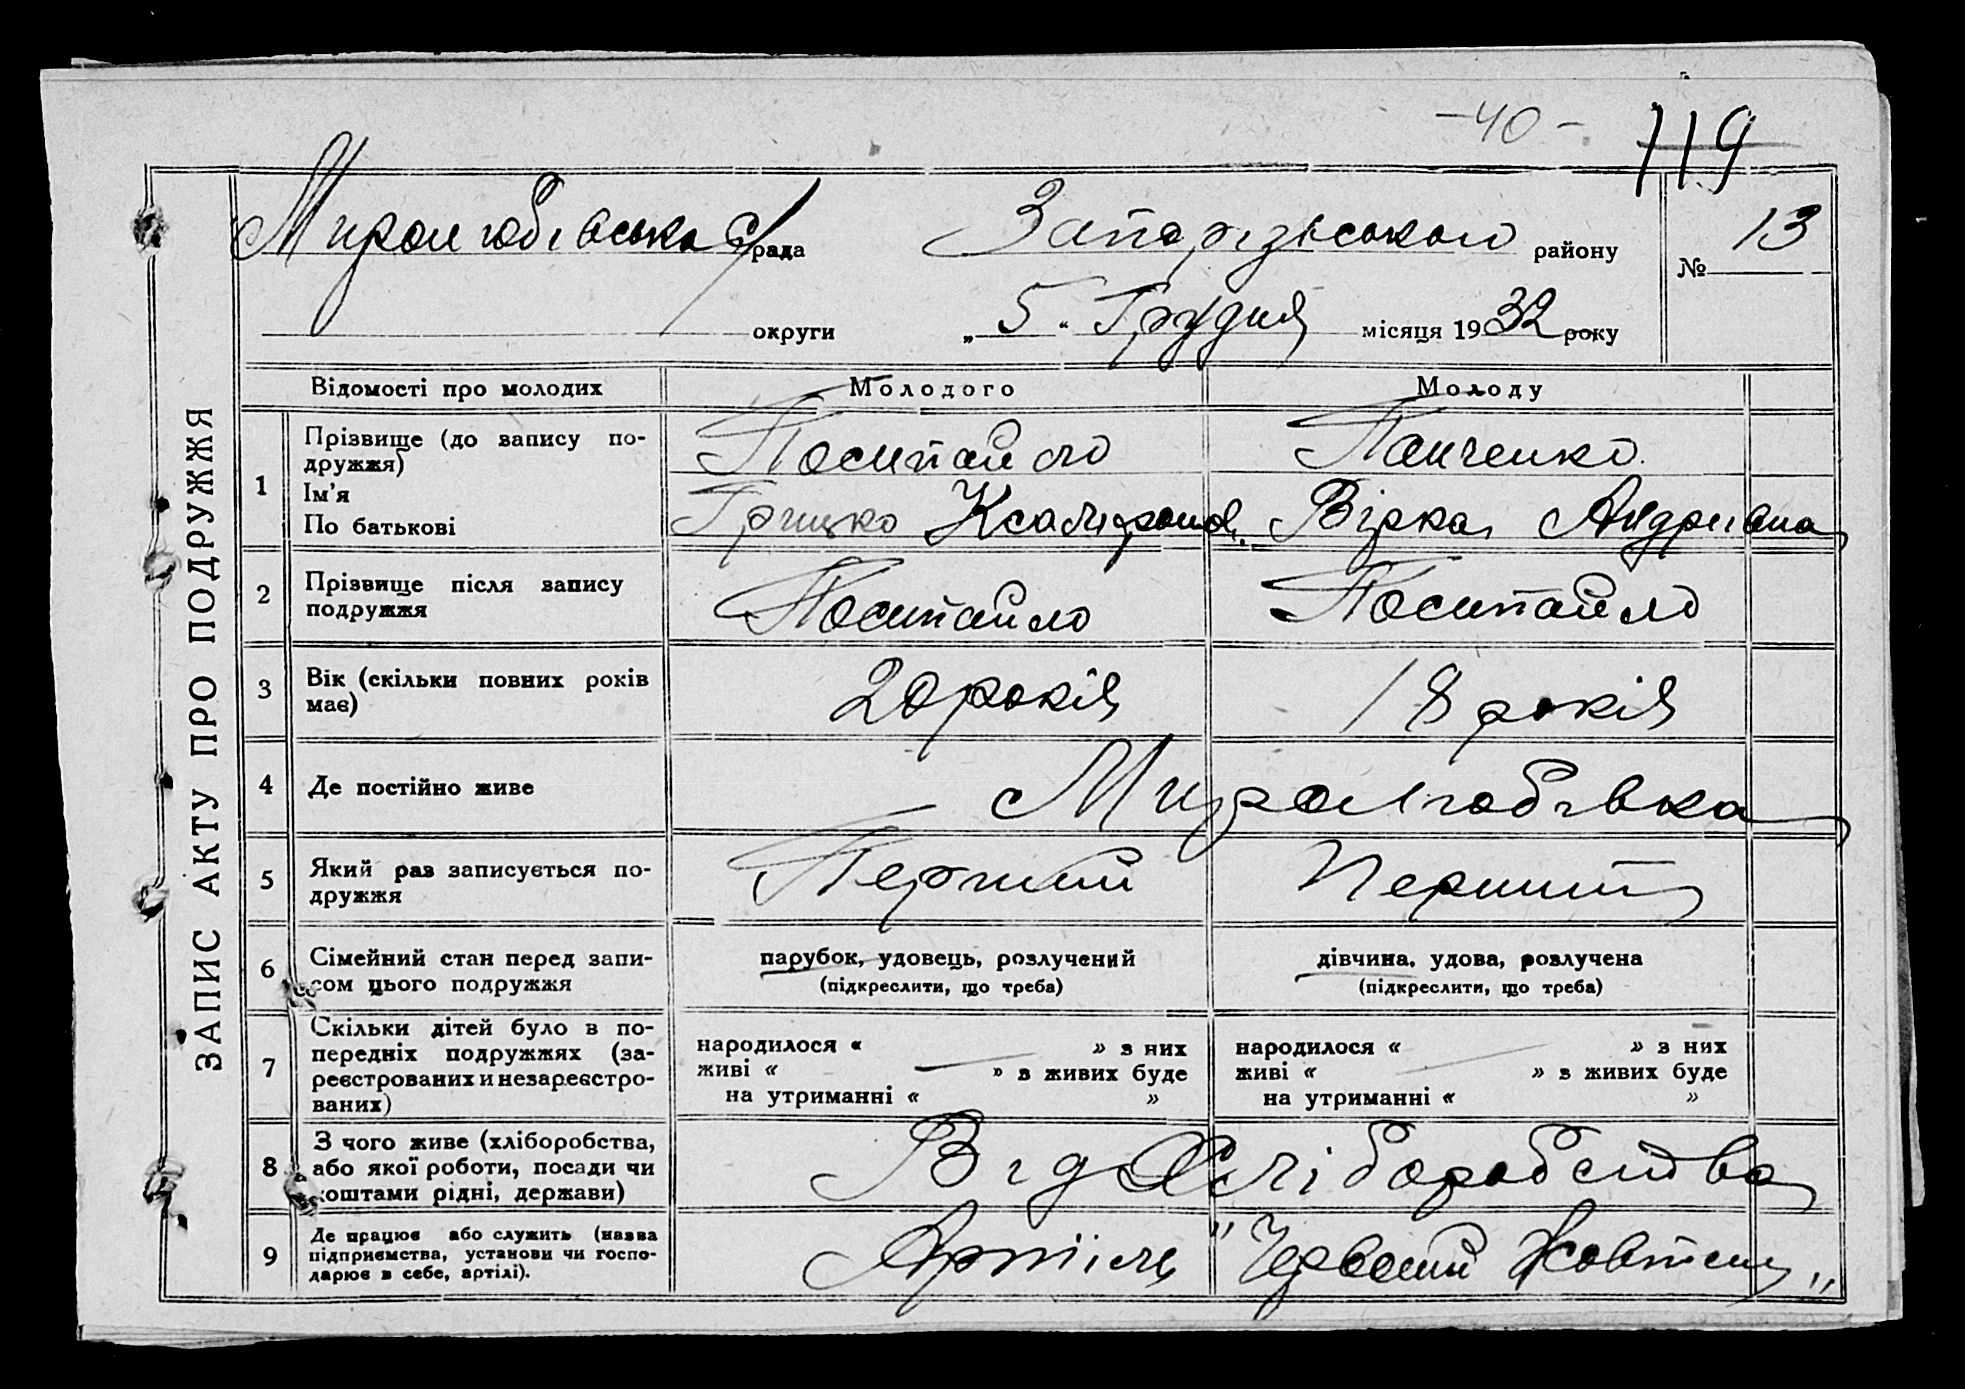 -40-
119
Миролюбівська с/рада Запорізького району
№ 13
округи „5“ Грудня місяця 1932 року
ЗАПИС АКТУ ПРО ПОДРУЖЖЯ
Відомості про молодих Молодого Молоду
1 Прізвище (до запису по-
дружжя) Посипайло Панченко
Ім'я
По батькові Грицко Вірка Андріівна
2 Прізвище після запису
подружжя Посипайло Посипайло
3 Вік (скільки повних років
має) 20 років 18 років
4 Де постійно живе Миролюбівка
5 Який раз записується по-
дружжя Перший Перший
6 Сімейний стан перед запи-
сом цього подружжя
парубок, удовець, розлучений
(підкреслити, що треба)
дівчина, удова, розлучена
(підкреслити, що треба)
7 Скільки дітей було в по-
передніх подружжях (за-
реєстрованих и незареєстро-
ваних)
народилося « — » з них
живі « — » з живих буде
на утриманні « »
народилося « — » з них
живі « — » з живих буде
на утриманні « »
8 З чого живе (хліборобства,
або якої роботи, посади чи
коштами рідні, держави) Від Хліборобства
9 Де працює або служить (назва
підприємства, установи чи госпо-
дарює в себе, артілі). Артіль "Червоний Жовтень"